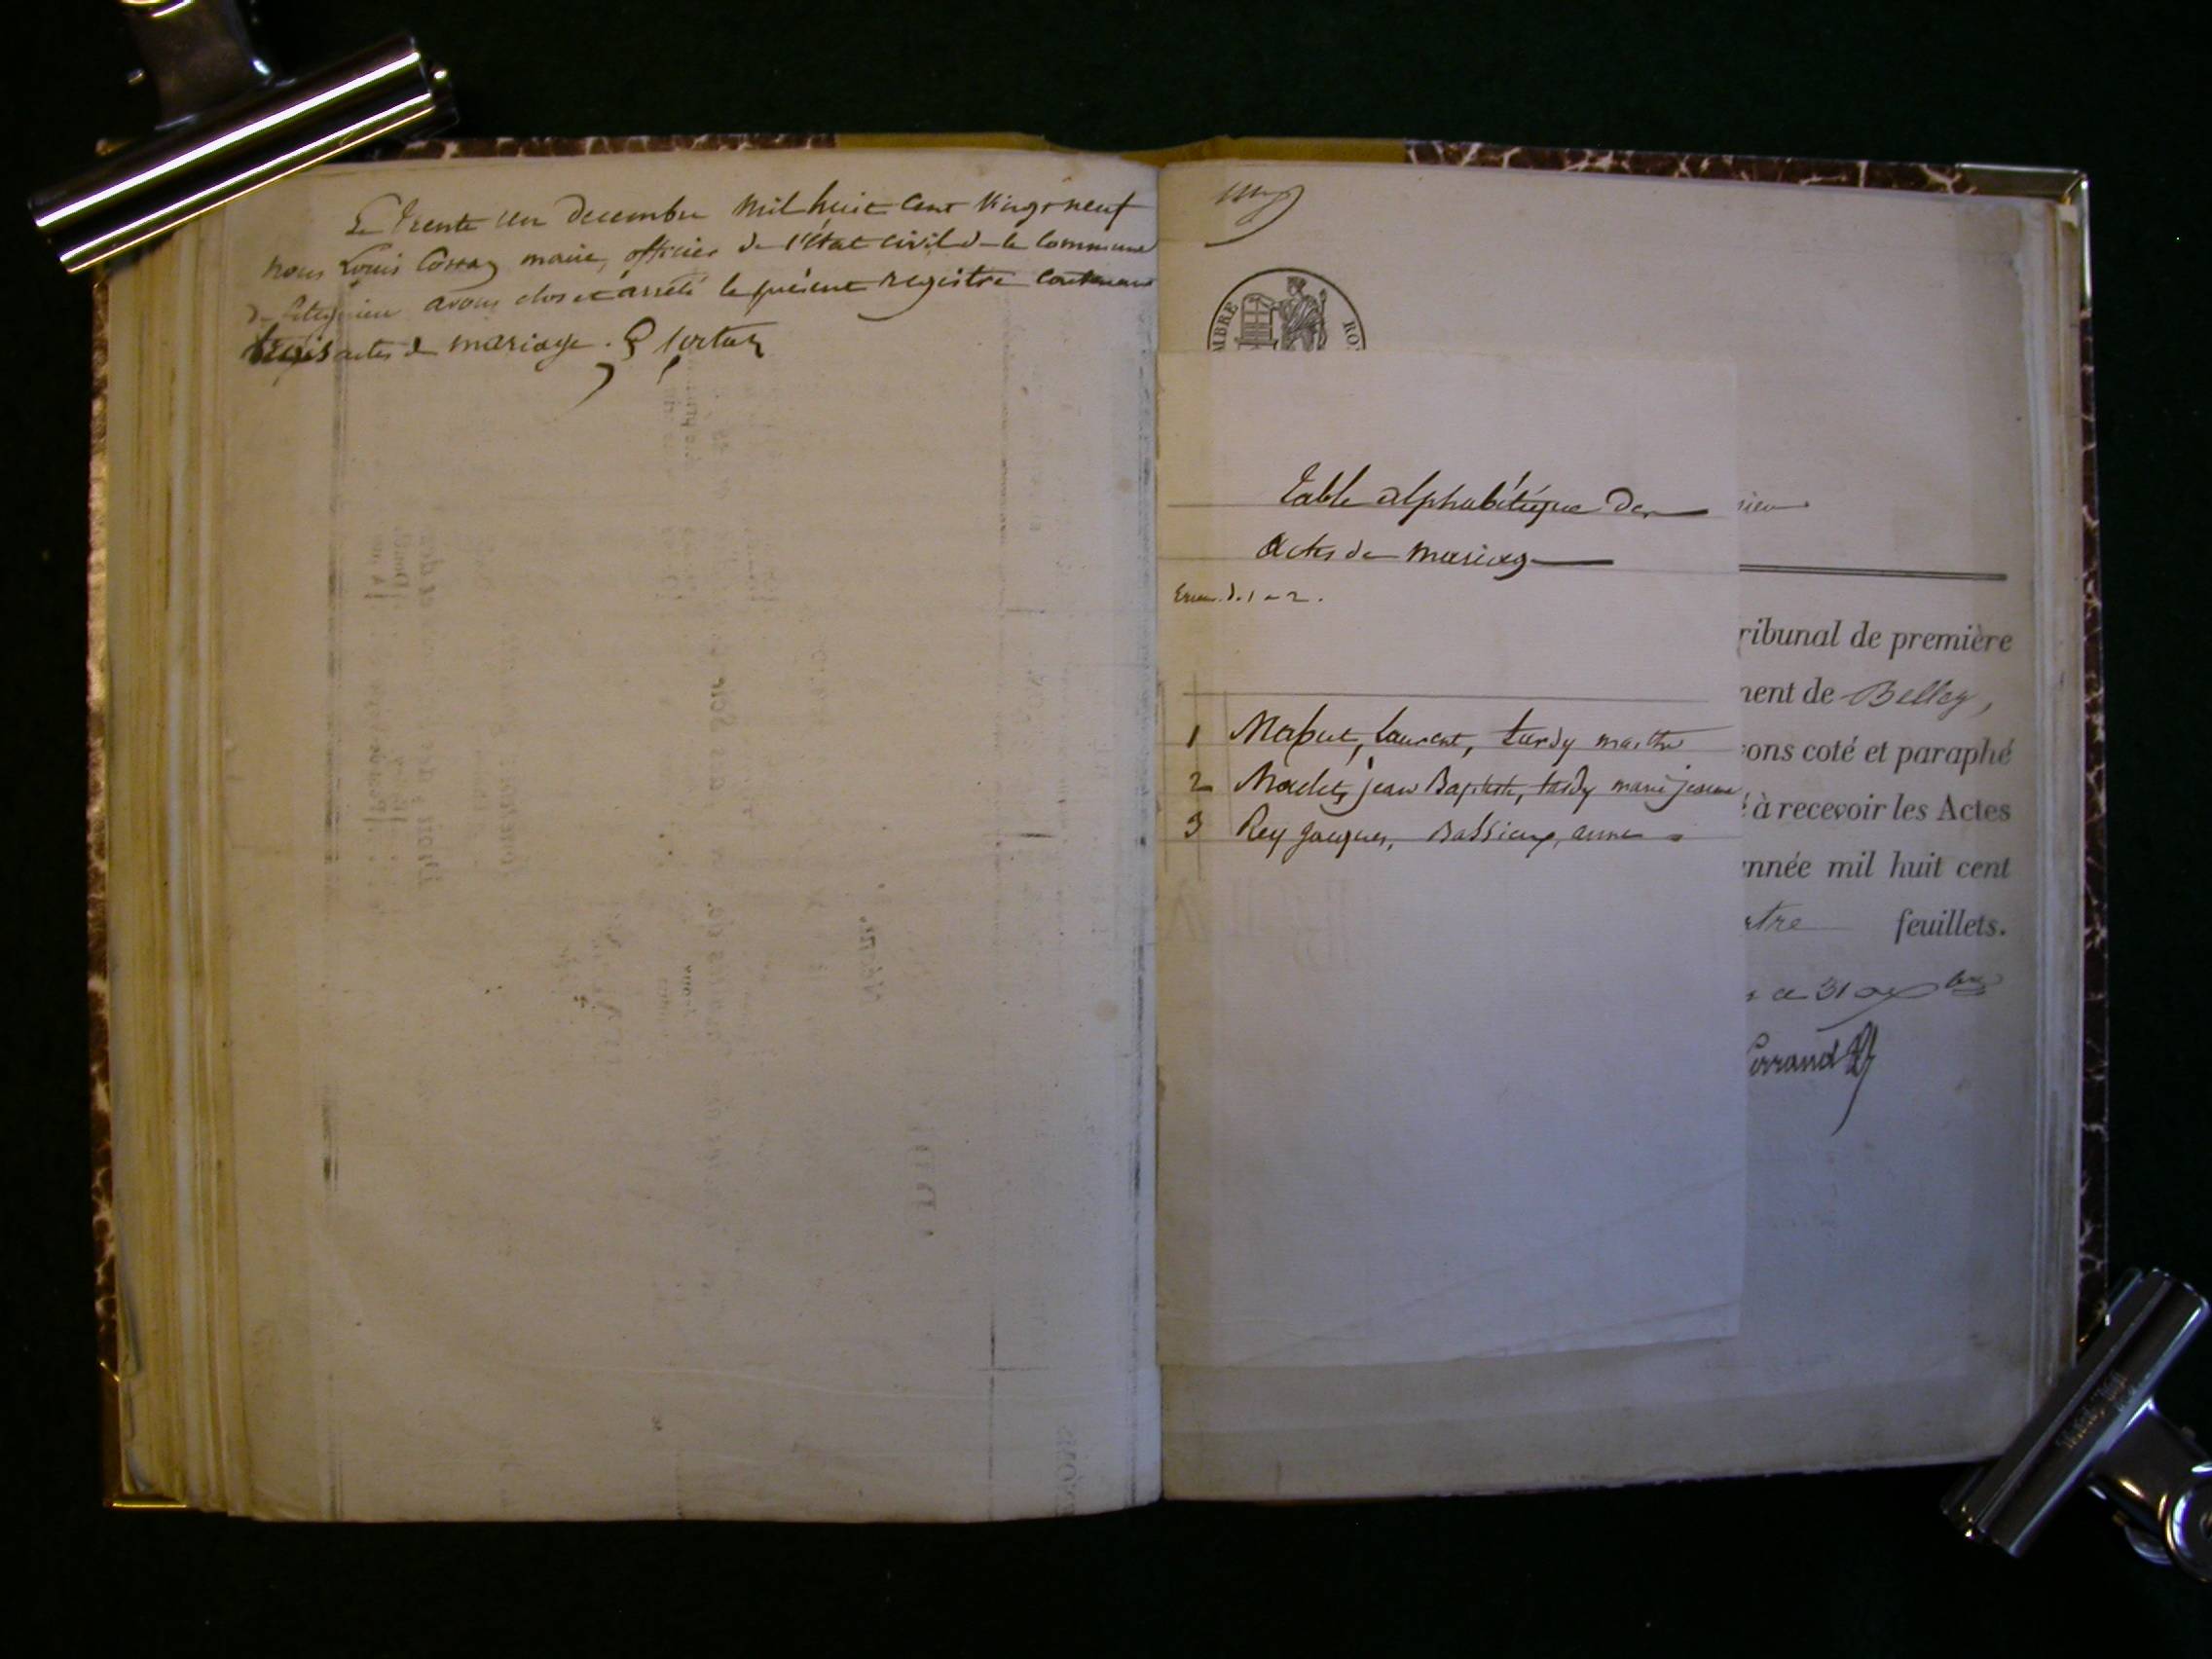 Le trente un decembre mil huit cent vingt neuf
nous Louis maire, officier de l'état civil de la commune
de avons clos et arrêté le présent registre contenant
trois actes de mariage.
TIMBRE RO
Table alphabétique des
actes de mariage
Erreur de 1 a 2.
1 Maput, Laurent, tardy marthe
2 jean Baptiste, tardy marie jeanne
3 Rey Jacques, anne
sieu
ribunal de première
ment de Belley,
ons coté et paraphé
à recevoir les Actes
nnée mil huit cent
tre feuillets.
ce 31 xbre